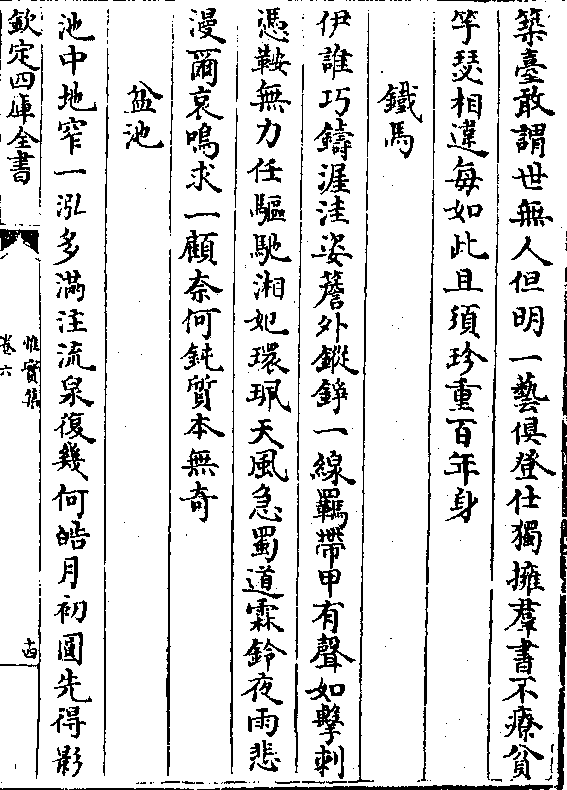 築臺敢謂世無人但明一藝俱登仕獨擁羣書不療貧
竽瑟相違每如此且須珍重百年身
鐵馬
伊誰巧鑄渥洼姿簷外鏦錚一線羈帶甲有聲如擊刺
憑鞍無力任驅馳湘妃環珮天風急蜀道霖鈴夜雨悲
漫爾哀鳴求一顧奈何鈍質本無奇
盆池
池中地窄一泓多滿注流泉復幾何皓月初圓先得影
欽定四庫全書
惟實集
卷六
十四